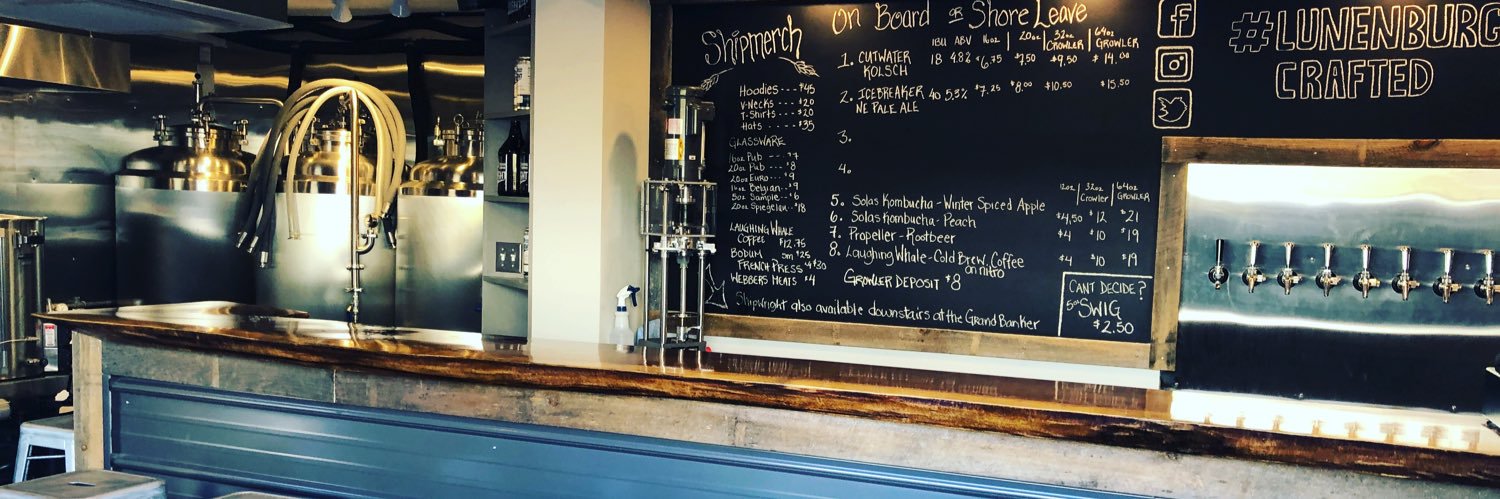 Shipmerch
Hoodies --- $45
V-Necks --- $20
T-Shirts --- $20
Hats --- $35
GLASSWARE
16oz Pub -- $7
20oz Pub -- $8
20oz Euro -- $9
16oz Belgian - $9
5oz Sample - $6
20oz Spiegelau - $18
LAUGHING WHALE
COFFEE $12.75
BODUM sm $25
FRENCH PRESS $30
WEBBERS MEATS $4
On Board OR Shore Leave
IBU ABV 16oz | 20oz | 32oz CROWLER | 64oz GROWLER
1. CUTWATER 18 4.8% $6.75 $7.50 $9.50 $14.00
KOLSCH
2. ICEBREAKER 40 5.3% $7.25 $8.00 $10.50 $15.50
NE PALE ALE
3.
4.
12oz | 32oz Crowler | 64oz GROWLER
5. Solas Kombucha - Winter Spiced Apple $4.50 $12 $21
6. Solas Kombucha - Peach
7. Propeller - Rootbeer $4 $10 $19
8. Laughing Whale - Cold Brew Coffee $4 $10 $19
on nitro
GROWLER DEPOSIT $8
Shipwright also available downstairs at the Grand Banker
CANT DECIDE?
5oz SWIG
$2.50
#LUNENBURG
CRAFTED